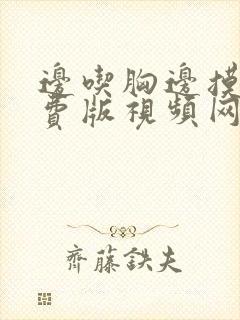 邊喫胸邊摸
費版視頻网
齊藤鉄夫